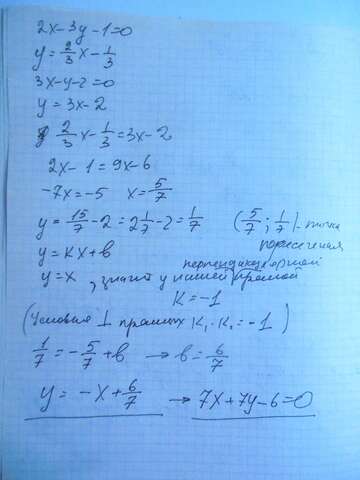 2x-3y-1=0
y=2/3x-1/3
3x-y-2=0
y=3x-2
2/3x-1/3=3x-2
2x-1=9x-6
-7x=-5 x=5/7
y=15/7-2=2 1/7-2=1/7 (5/7; 1/7)-точка пересечения
y=kx+b
y=x, значит у нашей перпендикулярной прямой
k=-1
(условия ⊥ прямых k₁·k₂=-1)
1/7=-5/7+b → b=6/7
y=-x+6/7 → 7x+7y-6=0